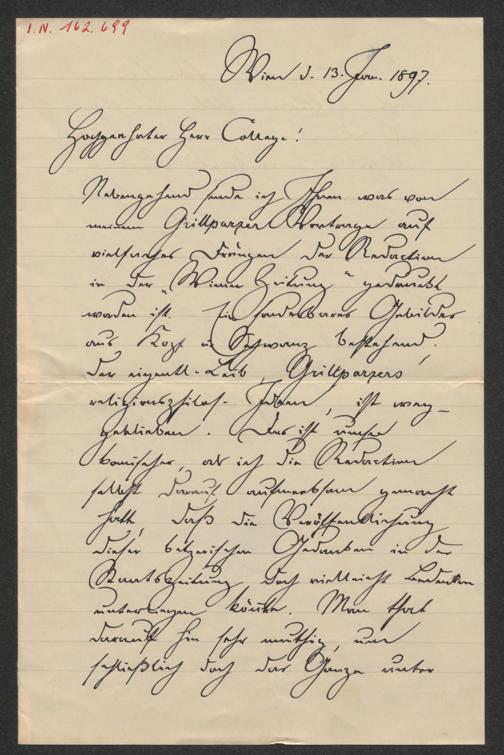 I.N. 162.699
Wien d. 13. Jan. 1897.
Hochgeehrter Herr College!
Nebengehend sende ich Ihnen was von
meinem Grillparzer Vortrage auf
vielfaches Drängen der Redaction
in der „Wiener Zeitung" gedruckt
worden ist. Ein sonderbares Gebilde
aus Kopf u Schwanz bestehend.
Der eigentl. Leib, Grillparzers
religionsphilos. Ideen, ist weg-
geblieben. Das ist umso
komischer, als ich die Redaction
selbst darauf aufmerksam gemacht
hatte, daß die Veröffentlichung
dieser ketzerischen Gedanken in der
Staatszeitung doch vielleicht Bedenken
unterliegen könnte. Man that
darauf hin sehr muthig, um
schließlich doch das Ganze unter